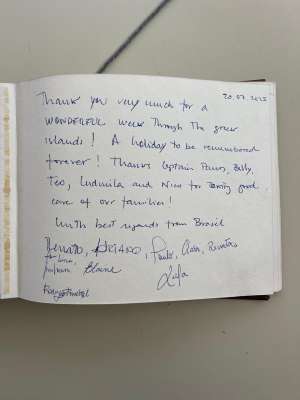 20.07.2025
Thank you very much for a
WONDERFUL week through the greek
islands! A holiday to be remembered
forever! Thanks Captain Billy,
Teo, Ludmila and Nico for taking good
care of our families!
With best regards from Brasil
Renato, ADRIANO, Paulo, Renata
Elaine